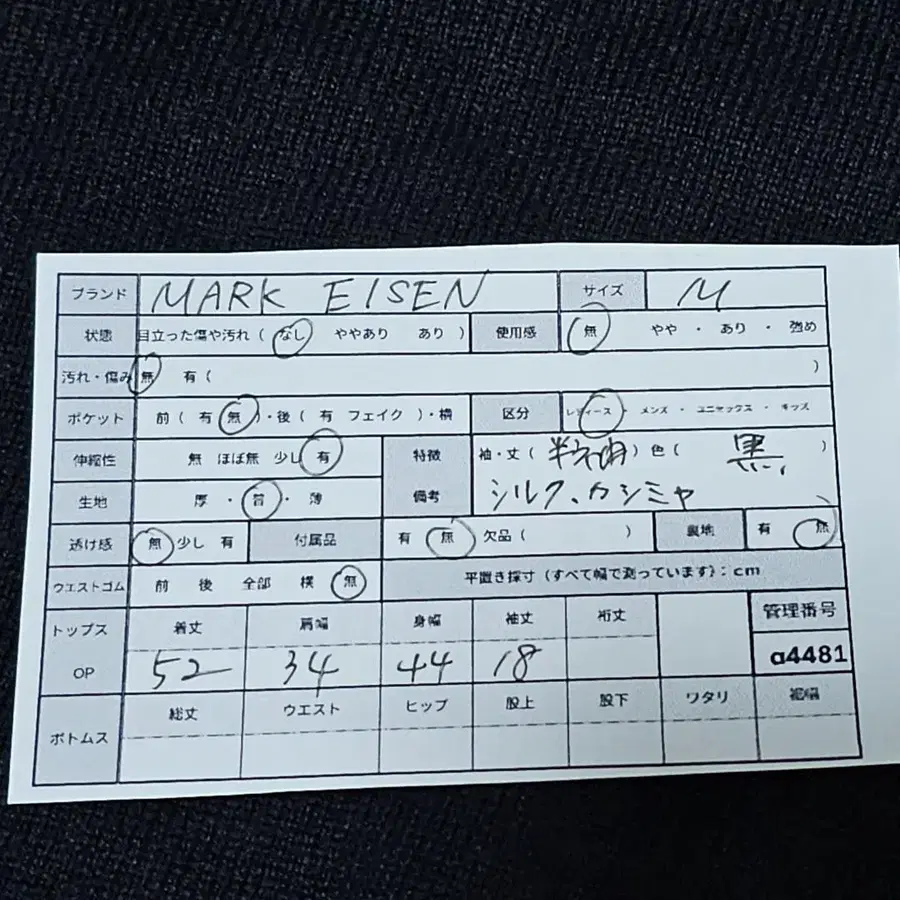 ブランド MARK EISEN サイズ M
状態 目立った傷や汚れ ( なし ややあり あり ) 使用感 無 やや ・ あり ・ 強め
汚れ・傷み 無 有 ( )
ポケット 前 ( 有 無 ) ・後 ( 有 フェイク ) ・横 区分 レディース ・ メンズ ・ ユニセックス ・ キッズ
伸縮性 無 ほぼ無 少し 有 特徴 袖・丈 ( 半袖 ) 色 ( 黒 )
生地 厚 ・ 普 ・ 薄 備考 シルク、カシミヤ
透け感 無 少し 有 付属品 有 無 欠品 ( ) 裏地 有 無
ウエストゴム 前 後 全部 横 無 平置き採寸 (すべて幅で測っています) : cm
トップス 着丈 肩幅 身幅 袖丈 裄丈 管理番号
OP 52 34 44 18 a4481
ボトムス 総丈 ウエスト ヒップ 股上 股下 ワタリ 裾幅